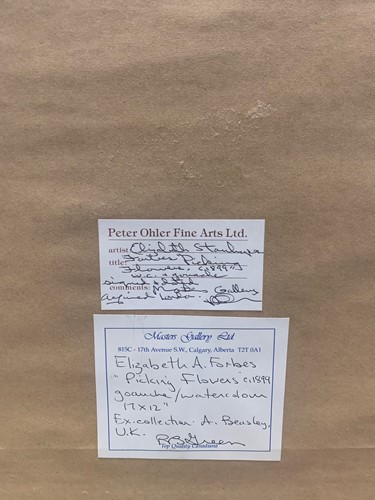 Peter Ohler Fine Arts Ltd.
artist: Elizabeth Stanhope
title: Forbes Picking
Flowers, c1899
w.c. & gouache
signed
comments: Masters Gallery
acquired London
Masters Gallery Ltd
815C - 17th Avenue S.W., Calgary, Alberta T2T 0A1
Elizabeth A. Forbes
"Picking Flowers c.1899
gouache/watercolour
17 x 12"
Ex. collection A. Beasley,
U.K.
Green
Top Quality Canadiana